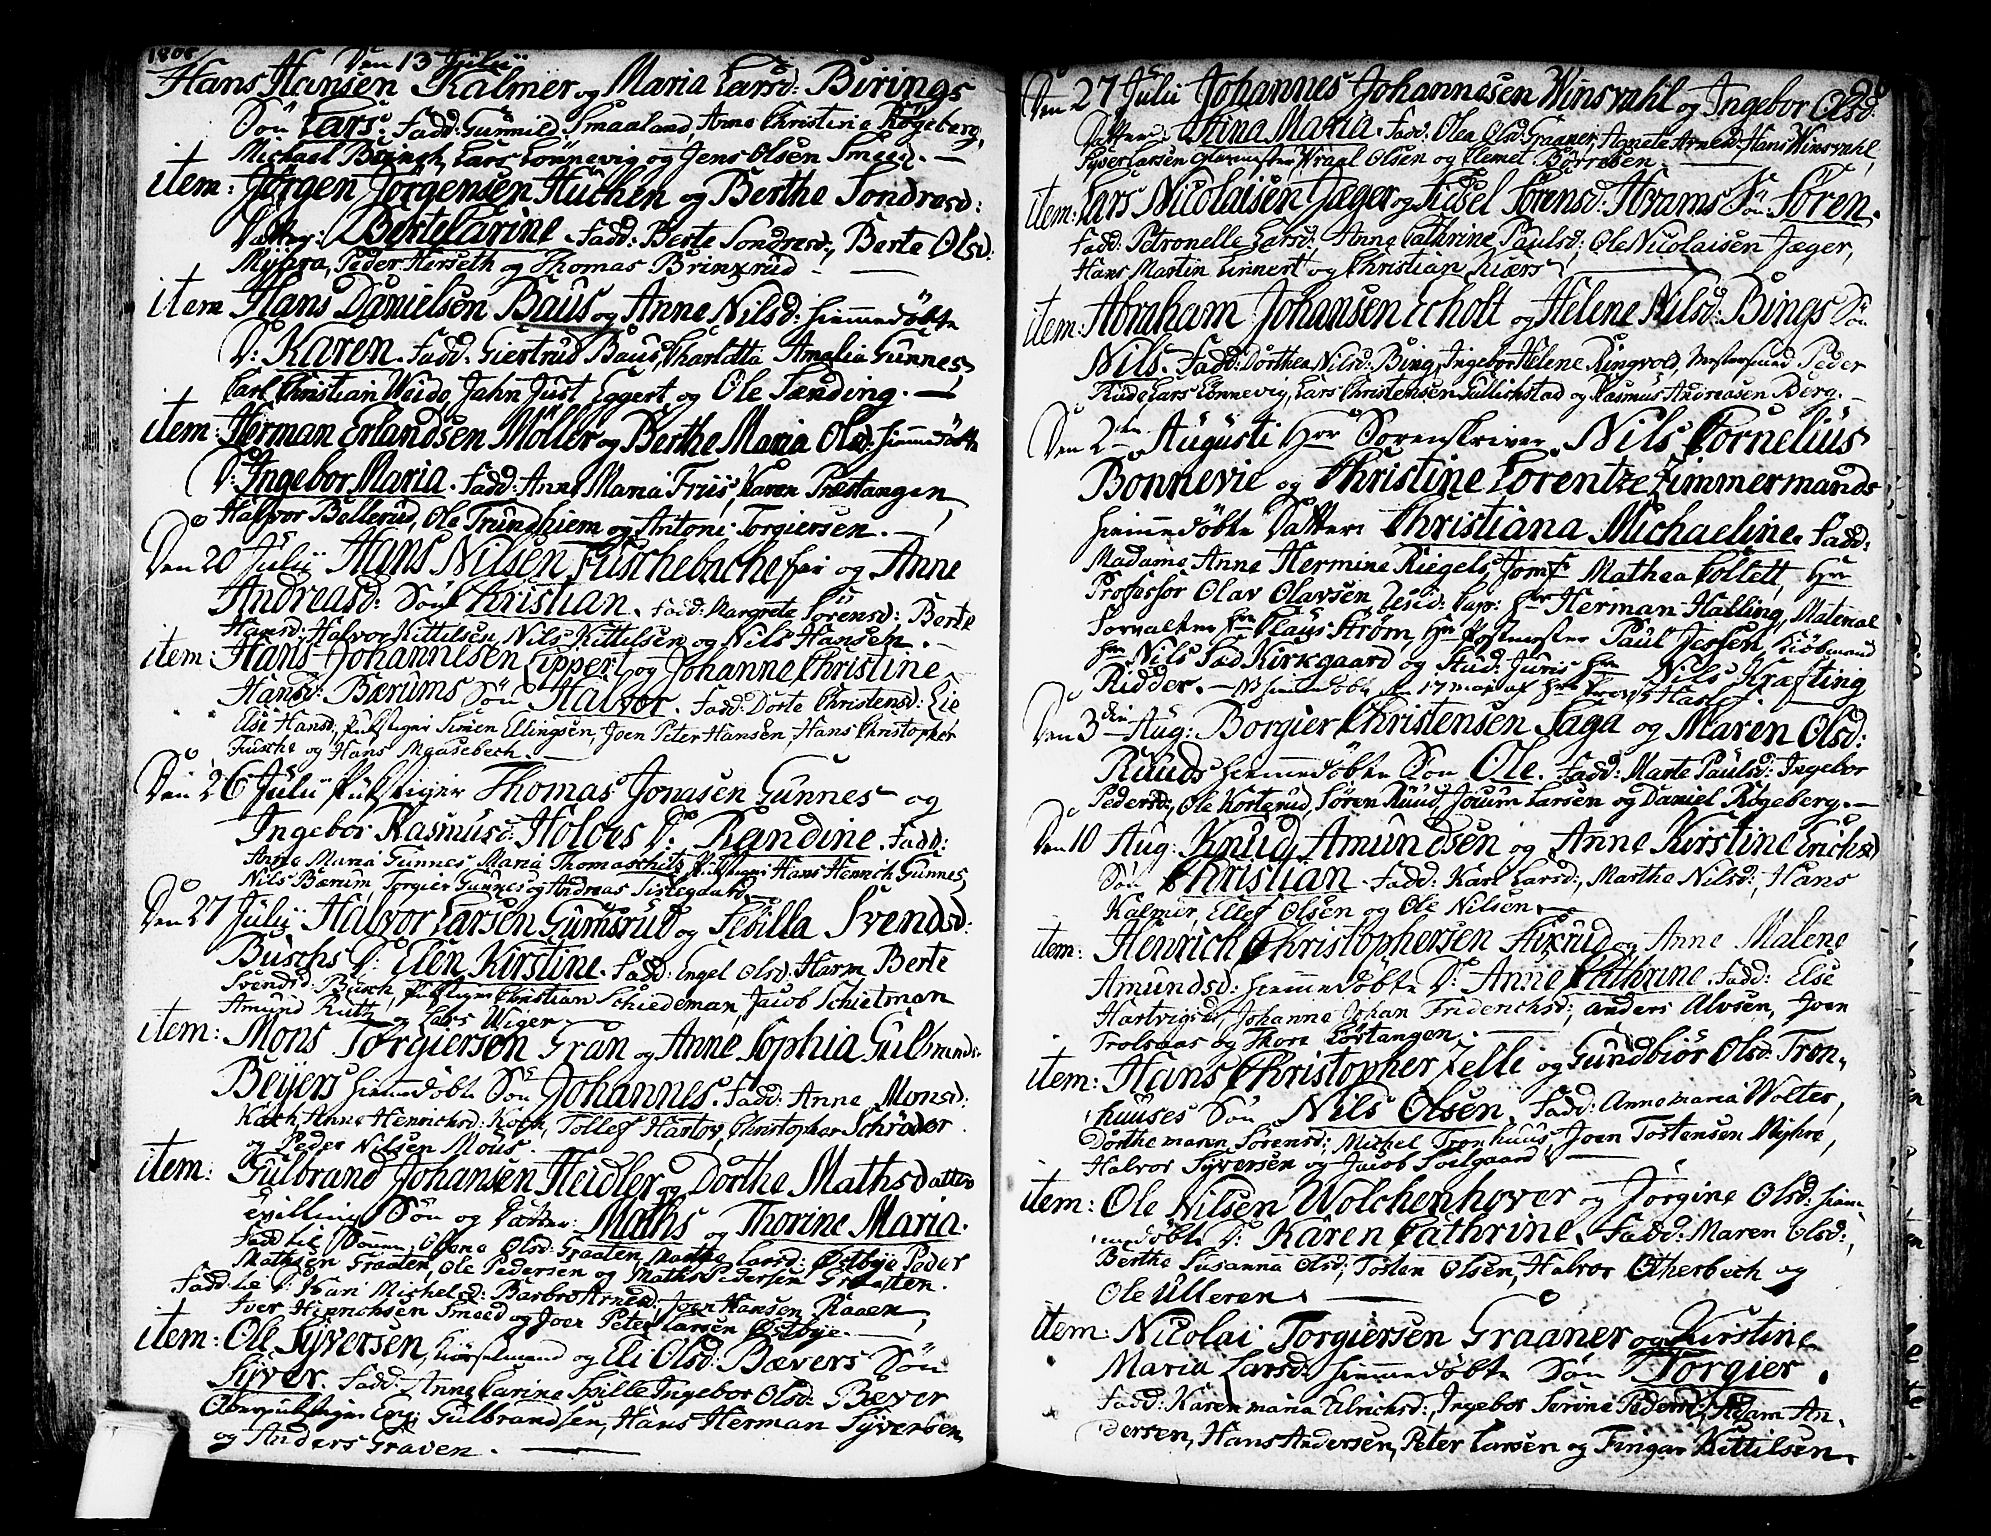 Den 13 Julii
Hans Hansen Kalmer og Maria Larsd: Birings
Søn Lars. Fadd: Gunnild Smaaland, Anne Christine Røgeberg,
Michael Biring, Lars Lønnevig og Jens Olsen Smed. —
item: Jørgen Jørgensen Huchen og Berthe Sondresd:
Datter: Berte Carine. Fadd: Berte Sondresd:, Berte Olsd:
Myhra, Peder Herseth og Thomas Brinxrud —
item Hans Danielsen Baus og Anne Nilsd: hiemmedøbte
D: Karen. Fadd: Giertrud Baus, Charlotta Amalia Gunnes,
Carl Christian Weido, Jahn Just Eggert og Ole Sænding. —
item: Herman Erlandsen Møller og Berthe Maria Olsd: hiemmedøbte
D: Ingebor Maria. Fadd: Anne Maria Friis, Karen Præstangen,
Halvor Bellerud, Ole Trunghiem og Antoni Torgiersen. —
Den 20 Julii Hans Nilsen Fuschebache og Anne
Andreasd: Søn Christian. Fadd: Margrete Sørensd: Berte
Hansd:, Halvor Kittilsen, Nils Kittilsen og Nils Hansen. —
item: Hans Johannesen Lippert og Johanne Christine
Hansd: Bærums Søn Halvor. Fadd: Dorte Christensd: Lie
Else Hansd:, Simen Ellingsen, Joen Peter Hansen, Hans Christopher
Fusche og Hans Maasebech. —
Den 26 Julii Thomas Jonasen Gunnes og
Ingebor Rasmusd: Holoes D: Randine. Fadd:
Anne Maria Gunnes, Maria Thomaschils, Hans Henrich Gunnes,
Nils Bærum, Torgier Gunnes og Andreas Sistegaard.
Den 27 Julii Halvor Larsen Gumsrud og Sibilla Svendsd:
Buschs D: Elen Kirstine. Fadd: Engel Olsd: Harm Berte
Svendsd: Busch, Christian Schiedeman, Jacob Schietman
Amund Rutz og Lars Wiger. —
item: Mons Torgiersen Gran og Anne Sophia Gulbrands:
Beijers hiemmedøbte Søn Johannes. Fadd: Anne Monsd:
Koch, Anne Henrichsd: Koch, Tollef Hartov, Christopher Schrøder
og Peder Nilsen Mous.
item: Gulbrand Johansen Heidler og Dorthe Mathsdatter
Tvilling Søn og Datter: Maths og Thorine Maria.
Fadd til Sønnen: Olsd: Graaten, Marthe Larsd: Østbye Peder
Mathisen Graaten, Ole Pedersen og Maths Pedersen Graaten.
Fadd: til D: Kari Michelsd: Barbro Arnesd: Joen Hansen Raaen,
Iver Henrichsen Smed og Joen Peter Larsen Østbye. —
item: Ole Syversen, Kiørselmand og Eli Olsd: Bævers Søn
Syver. Fadd: Anne Carine Spille Ingebor Olsd: Bæver
Gulbrandsen, Hans Herman Syversen,
og Anders Graven. —
Den 27 Julii Johannes Johannesen Winsvahl og Ingebor Olsd:
Datter: Stina Maria. Fadd: Olea Olsd: Graaner, Agnete Arnesd: Hans Winsvahl,
Syver Larsen Glarmester, Wraal Olsen og Clemet Børresen. —
item: Lars Nicolaisen Jæger og Sidsel Sørensd: Hrams Søn: Søren.
Fadd: Petronelle Larsd:, Anne Cathrine Paulsd:, Ole Nicolaisen Jæger,
Hans Martin Linnert og Christian Kiærs. —
item: Abraham Johansen Echolt og Helene Nilsd: Bings Søn
Nils. Fadd: Dorthea Nilsd: Bing, Ingebor Helene Ringvold, Peder
Rude, Lars Lønnevig, Lars Christensen Gullichstad og Rasmus Andreasen Berg. —
Den 2den Augusti Hør Sorenskriver Nils Cornelius
Bonnevie og Christine Lorentze Zimmermands
hiemmedøbte Datter: Christiana Michaeline. Fadd:
Madame Anne Hermine Riegels, Jomf: Mathea Collett, Hr:
Professor Olav Olavsen, Resid: Capp: Hr: Herman Halling, Material
Forvalter Hr: Claus Strøm, Hr: Postmester Paul Jessen, Kiøbmand
Hr: Nils Sad Kirkgaard og Stud: Juris Hr: Nils Kræfting
Ridder. — NB hiemmedøbt den 17 Maj af Hr: Provst Hasle. —
Den 3die Aug: Borgier Christensen Saga og Maren Olsd:
Ruuds hiemmedøbte Søn Ole. Fadd: Marte Paulsd: Ingebor
Pedersd:, Ole Korterud, Søren Ruud, Joium Larsen og Daniel Røgeberg. —
Den 10 Aug: Knud Amundsen og Anne Kirstine Erichsd
Søn Christian. Fadd: Kari Larsd:, Marthe Nilsd:, Hans
Kalmer, Ellef Olsen og Ole Nilsen. —
item: Henrich Christophersen Stixrud og Anne Malene
Amundsd: hiemmedøbte D: Anne Cathrine. Fadd: Else
Hartvigsd: Johanne Johan Friderichsd:, Anders Alvsen, Joen
Trolsaas og Thore Løstangen. —
item: Hans Christopher Zelle og Gundbiør Olsd: Tron,
huuses Søn Nils Olsen. Fadd: Anne Maria Wolter,
Dorthe Maren Sørensd:, Michel Tronhuus, Joen Tostensen Myhre,
Halvor Syversen og Jacob Soelgaard. —
item: Ole Nilsen Wolchenhover og Jørgine Olsd: hiem-
medøbte D: Karen Cathrine. Fadd: Maren Olsd:,
Berthe Susanna Olsd:, Tosten Olsen, Halvor Otherbech og
Ole Ulleren. —
item: Nicolai Torgiersen Graaner og Kirstine
Maria Larsd: hiemmedøbte Søn Torgier.
Fadd: Karen Maria Elrichsd:, Ingebor Sørine Pedersd:, Adam An-
dersen, Hans Andersen, Peter Larsen og Fingar Kittilsen.